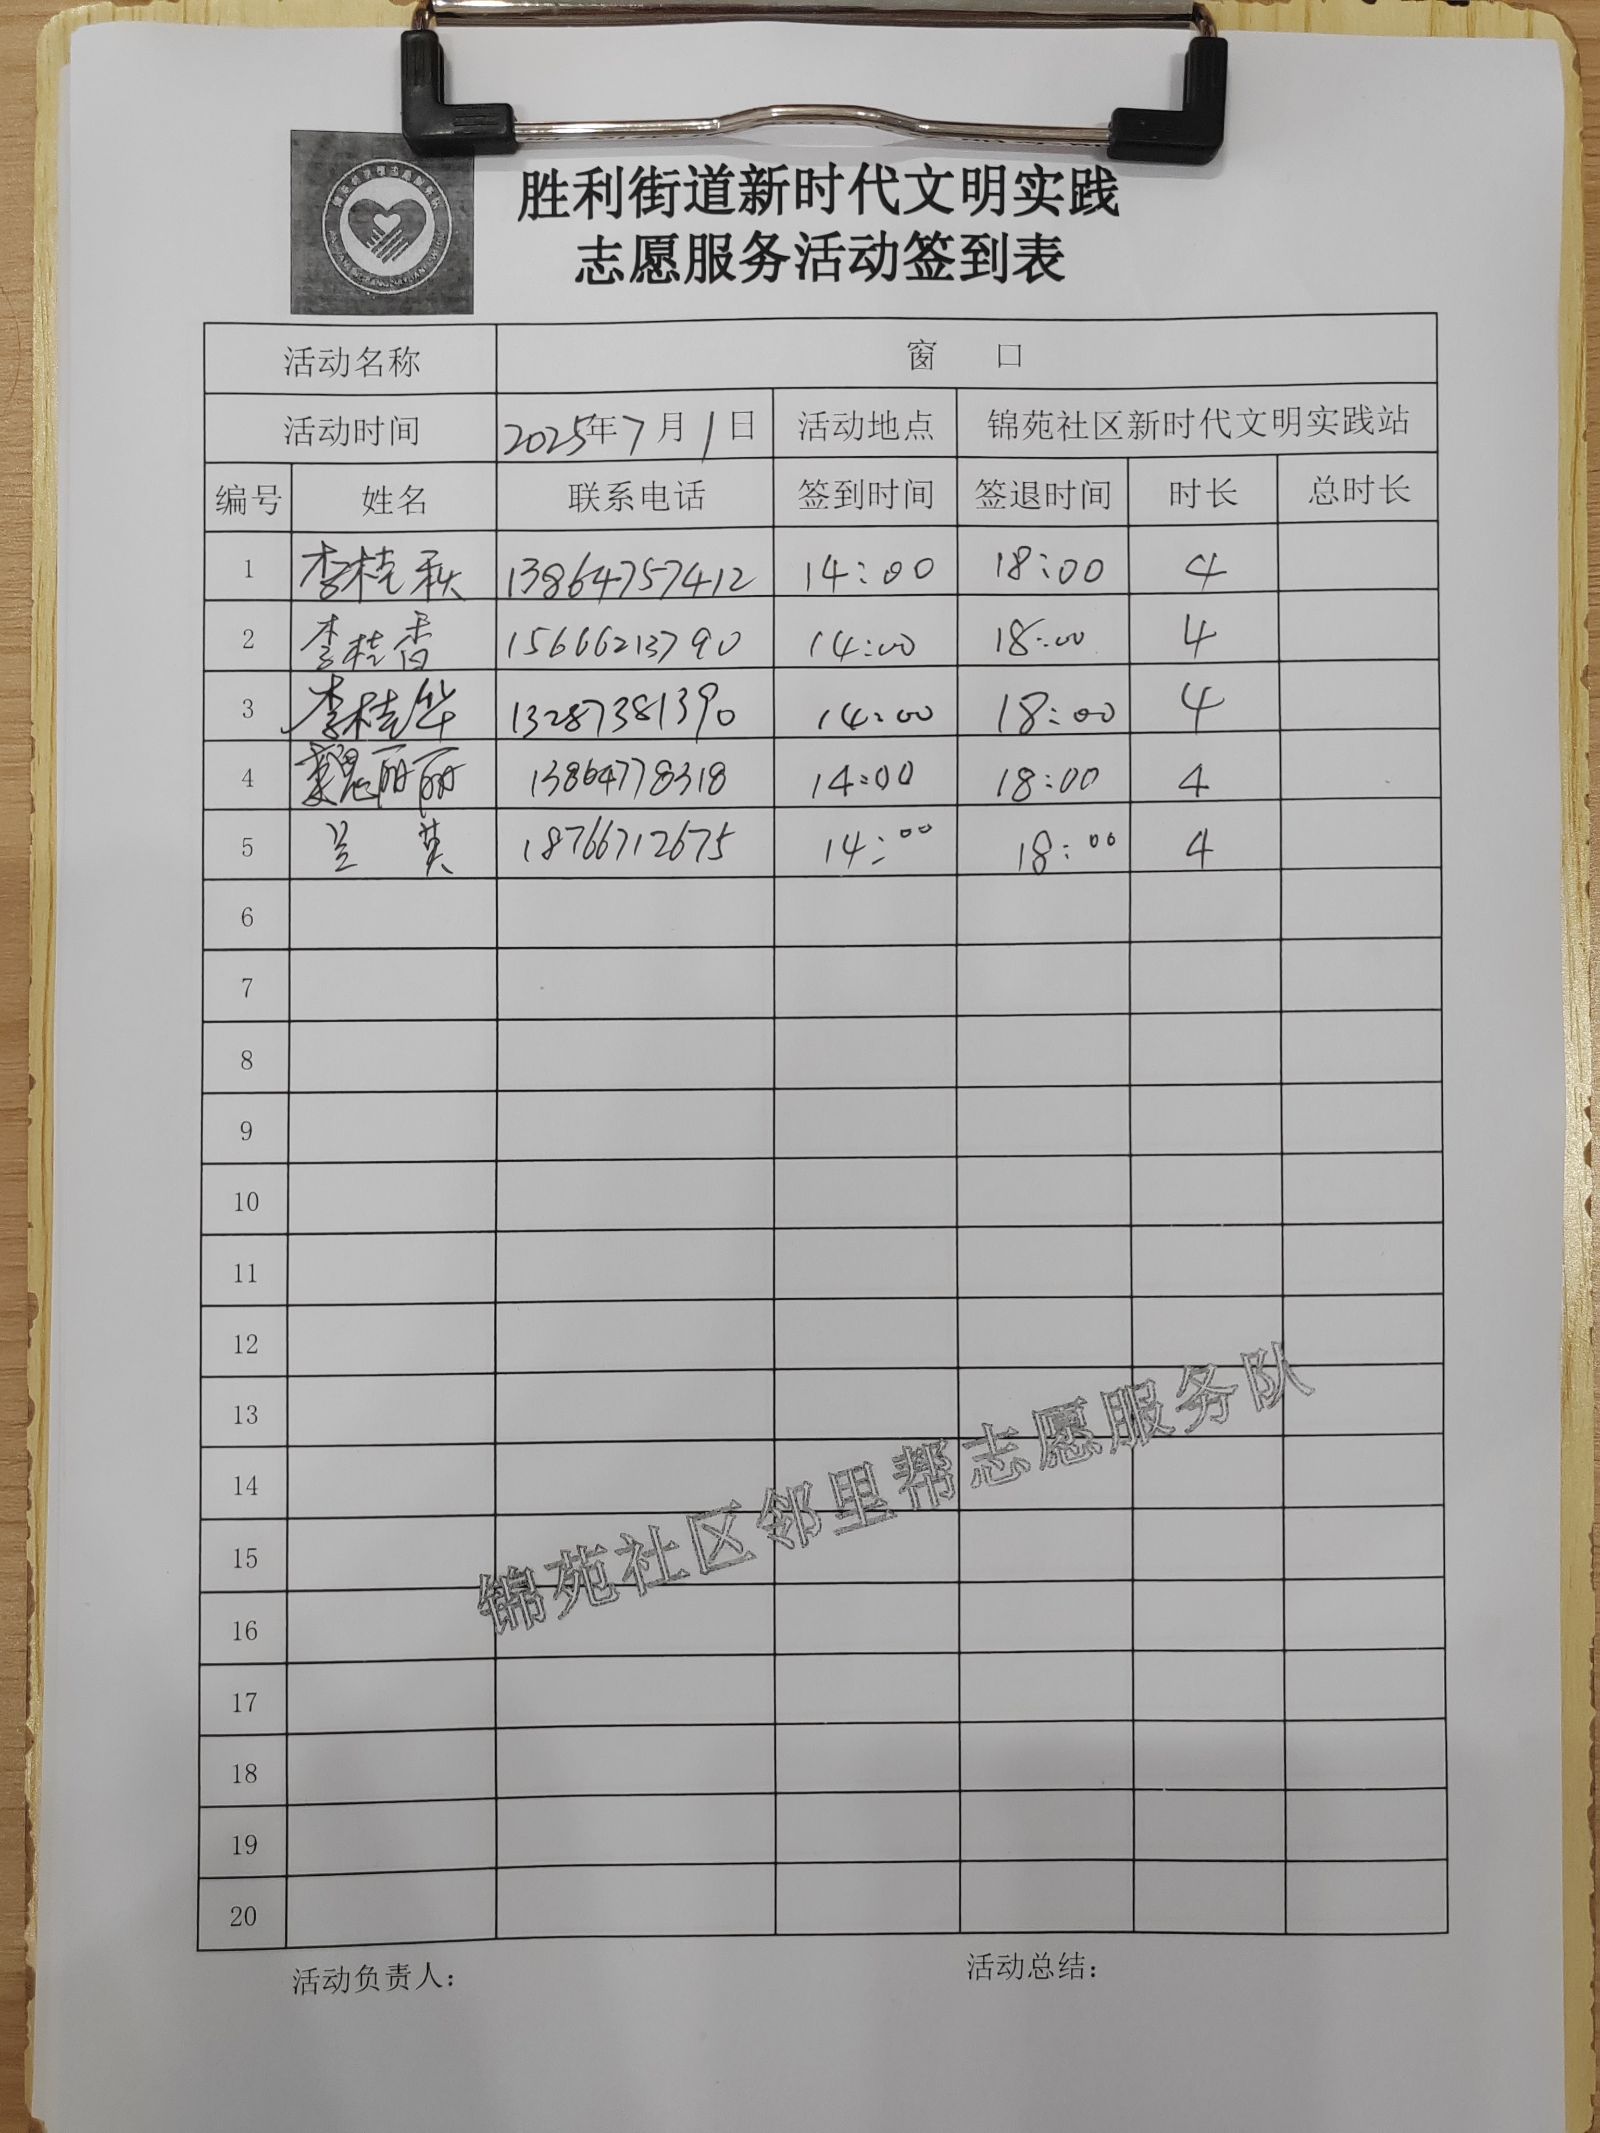 胜利街道新时代文明实践
志愿服务活动签到表
活动名称 窗 口
活动时间 2025年7月1日 活动地点 锦苑社区新时代文明实践站
编号 姓名 联系电话 签到时间 签退时间 时长 总时长
1 李桂秋 13864757412 14:00 18:00 4
2 李桂香 15666213790 14:00 18:00 4
3 李桂华 13287381390 14:00 18:00 4
4 魏丽丽 13864778318 14:00 18:00 4
5 兰英 18766712675 14:00 18:00 4
6
7
8
9
10
11
12
13
14
15
16
17
18
19
20
锦苑社区邻里帮志愿服务队
活动负责人： 活动总结：